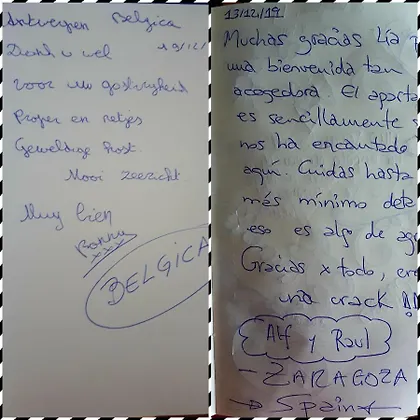 Antwerpen Belgica
Dank u wel 19/12/
voor uw gastvrijheid
Proper en netjes
Geweldige host.
Mooi zeezicht
Muy bien
BELGICA
13/12/19
Muchas gracias Lía
una bienvenida tan
acogedora. El aparta
es sencillamente
nos ha encantado
aquí. Cuidas hasta
más mínimo deta
eso es algo de ag
Gracias x todo, ere
una crack!!
Alf y Raul
- ZARAGOZA
→ Spain